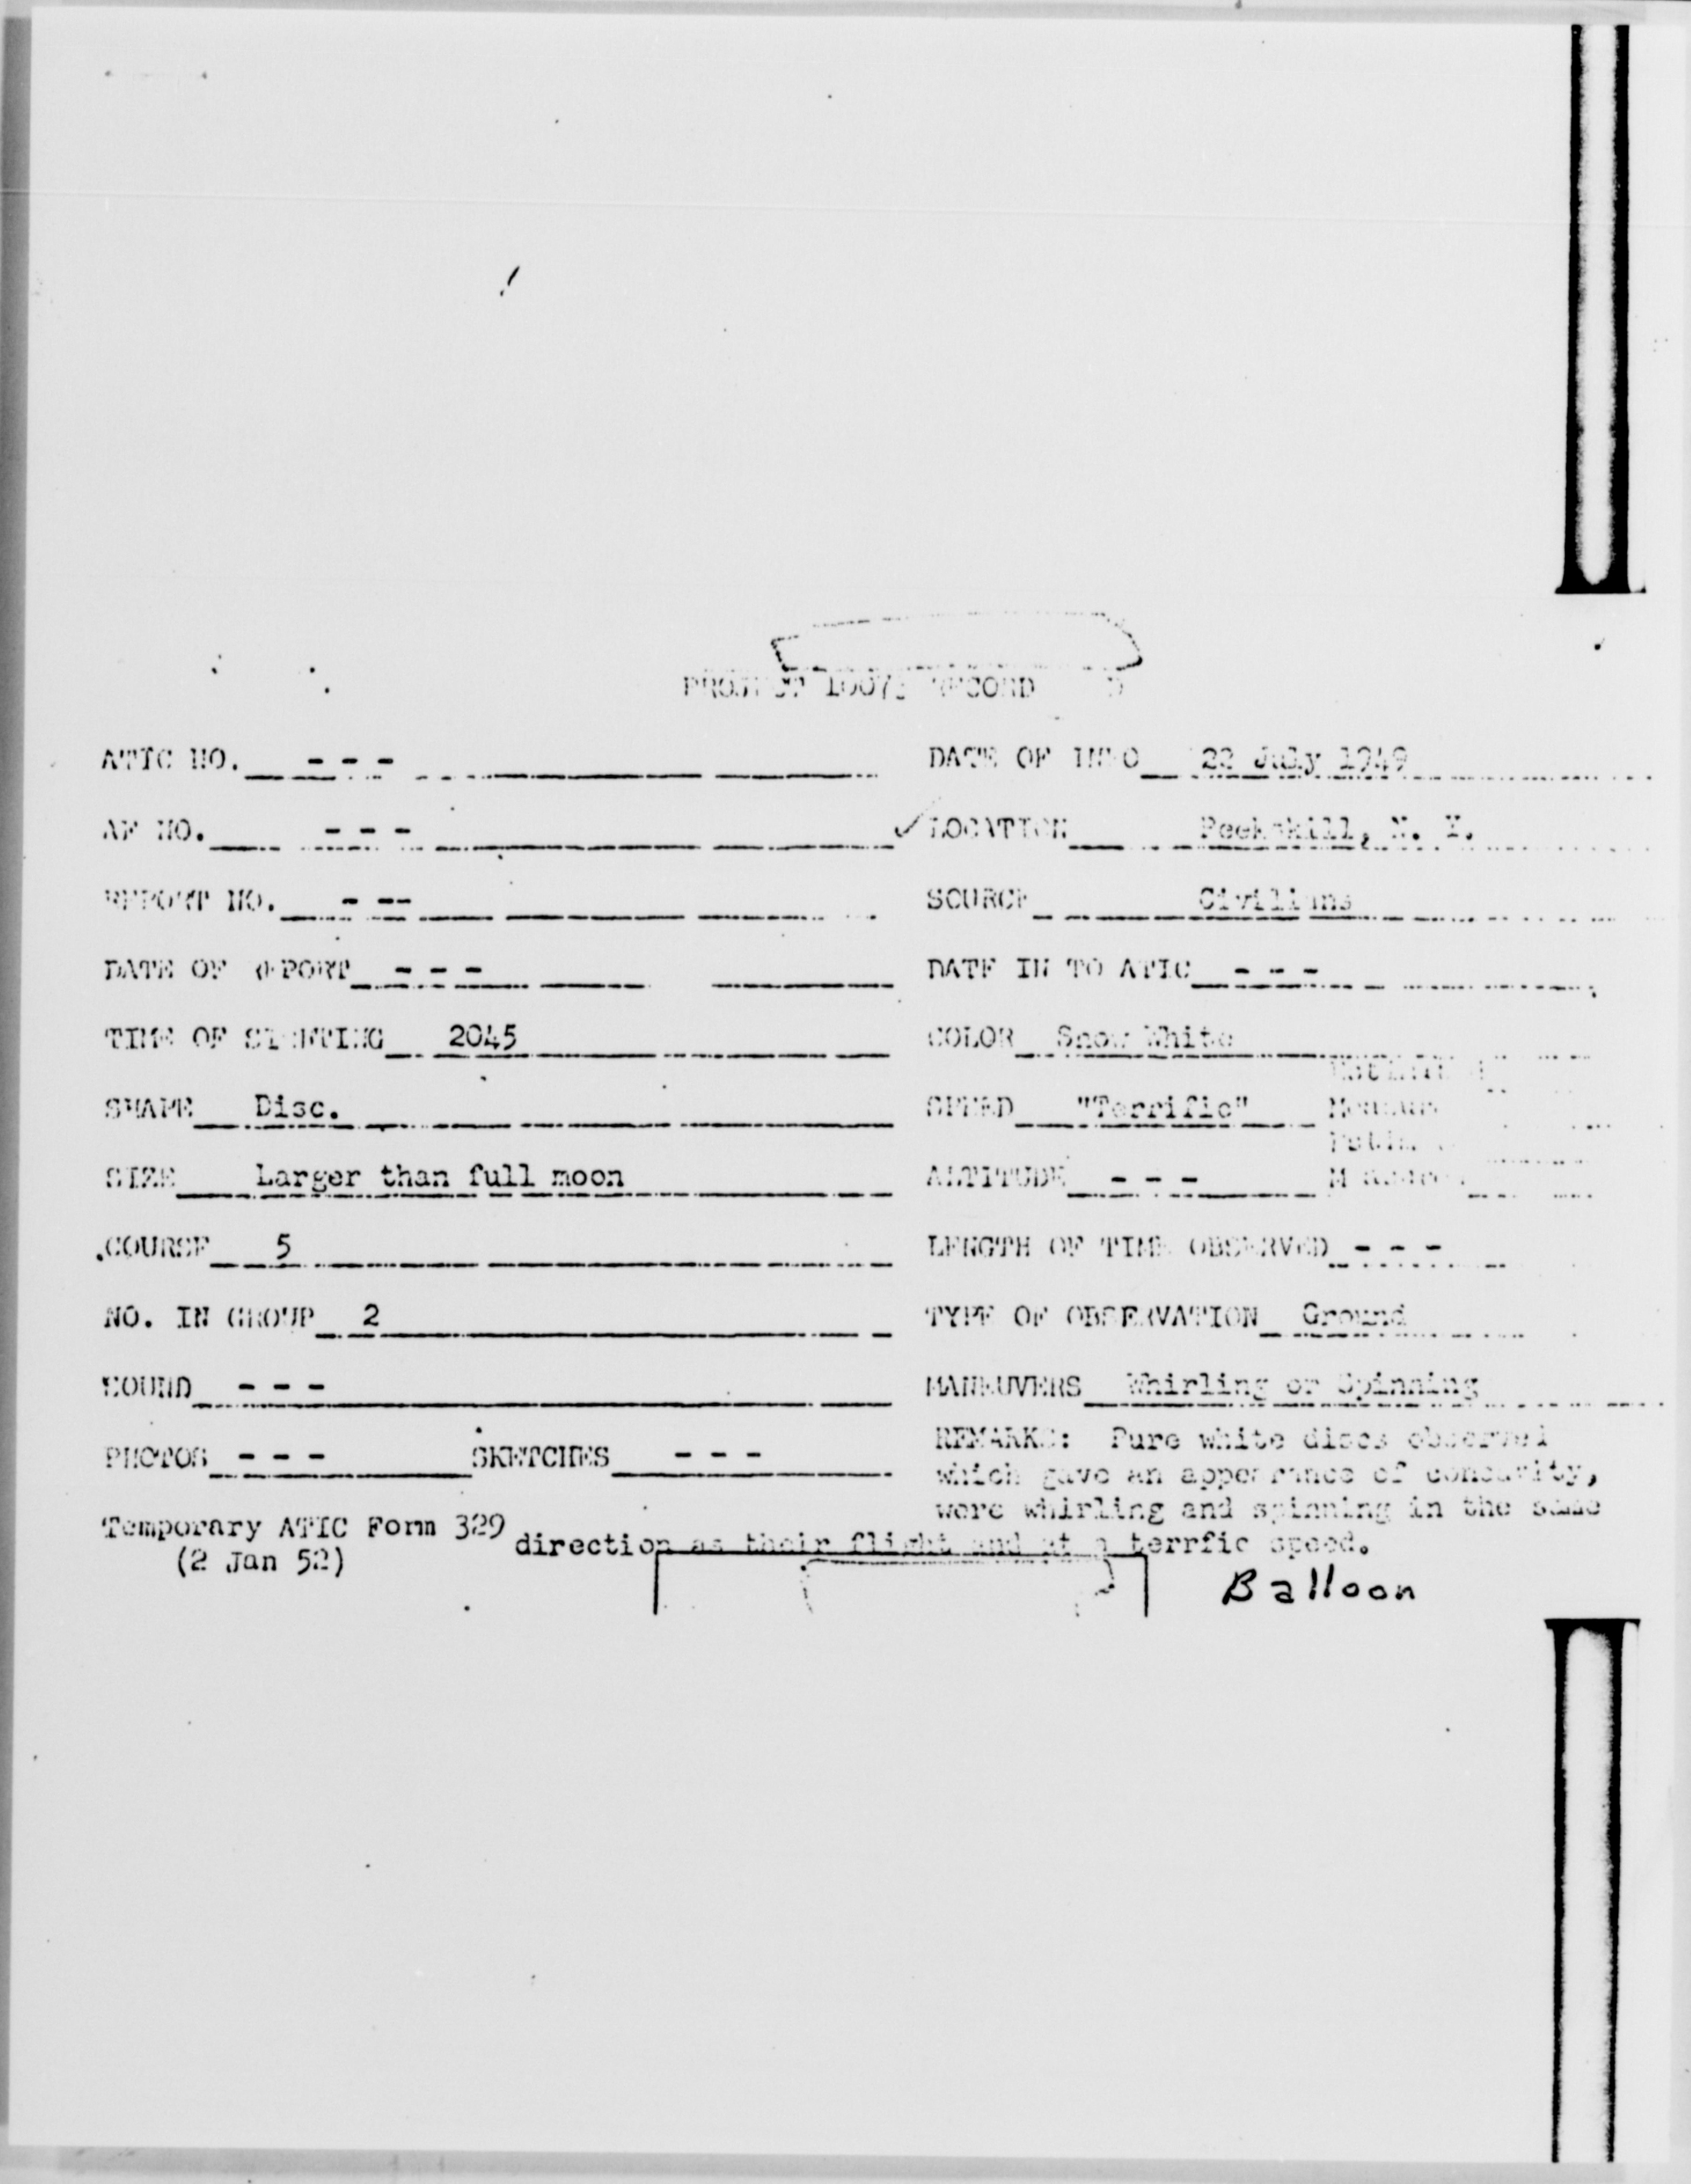 PROJECT 10073 RECORD
ATIC NO. - - - DATE OF INFO 22 July 1949
AF NO. - - - ✓ LOCATION Peekskill, N. Y.
REPORT NO. - -- SOURCE Civilians
DATE OF REPORT - - - DATE IN TO ATIC - - -
TIME OF SIGHTING 2045 COLOR Snow White
SHAPE Disc. SPEED "Terrific"
SIZE Larger than full moon ALTITUDE - - -
COURSE 5 LENGTH OF TIME OBSERVED - - -
NO. IN GROUP 2 TYPE OF OBSERVATION Ground
SOUND - - - MANEUVERS Whirling or Spinning
PHOTOS - - - SKETCHES - - -
REMARKS: Pure white discs observed
which gave an appearance of
were whirling and spinning in the same
direction as their flight and at a terrfic speed.
Temporary ATIC Form 329
(2 Jan 52)
Balloon